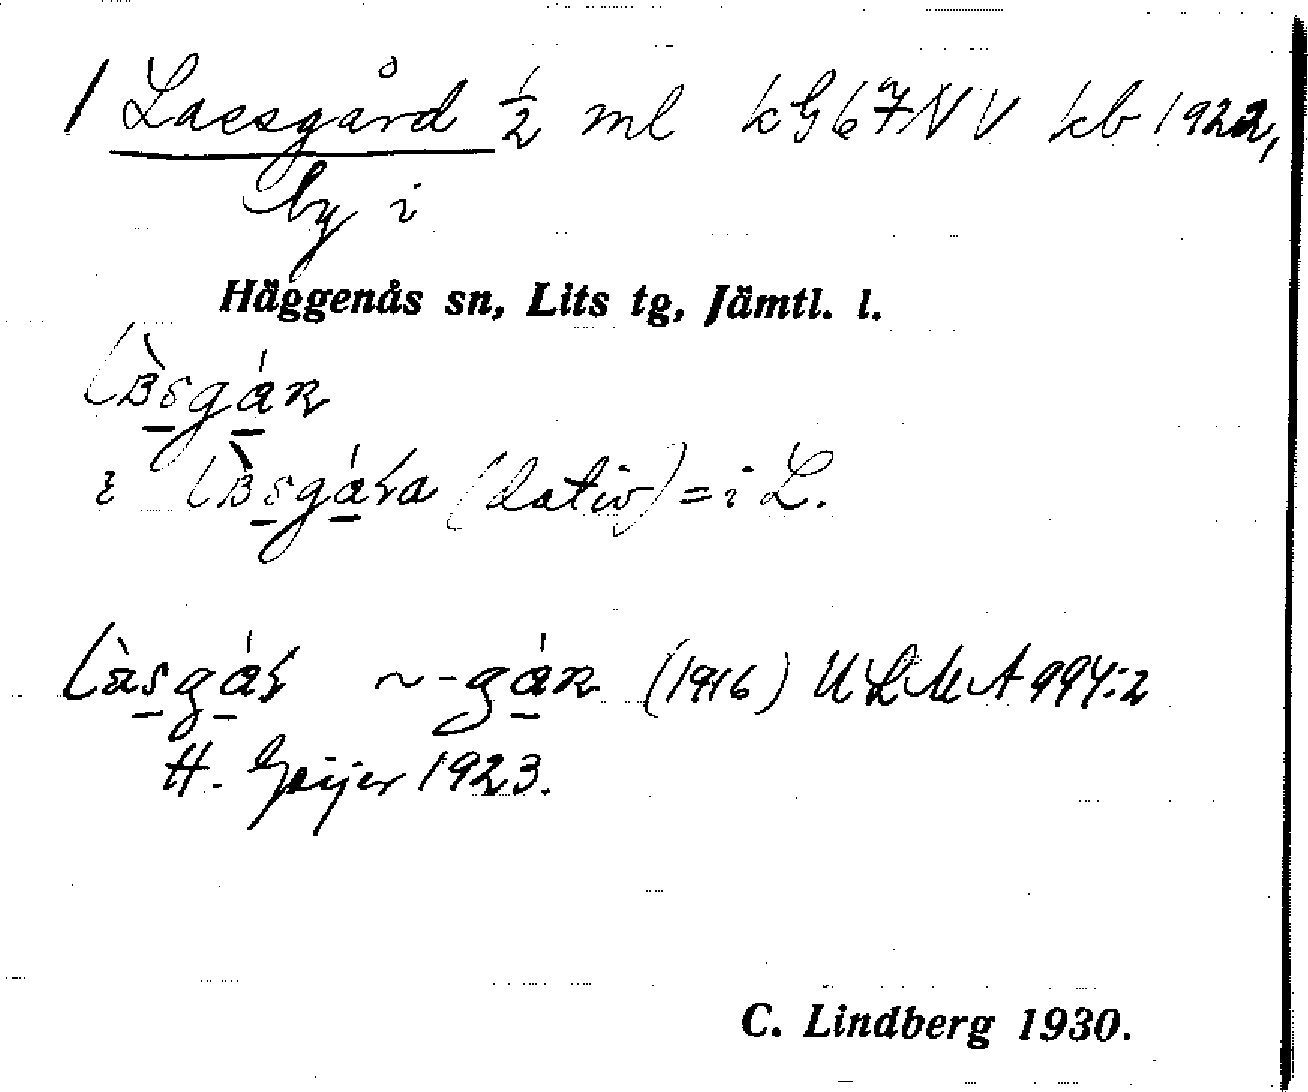 1 Lassgård ½ ml kG67NV kb 1922,
by i
Häggenås sn, Lits tg, Jämtl. l.
(dativ) = i L.
~ - (1916) ULMA 994:2
H. Geijer 1923.
C. Lindberg 1930.